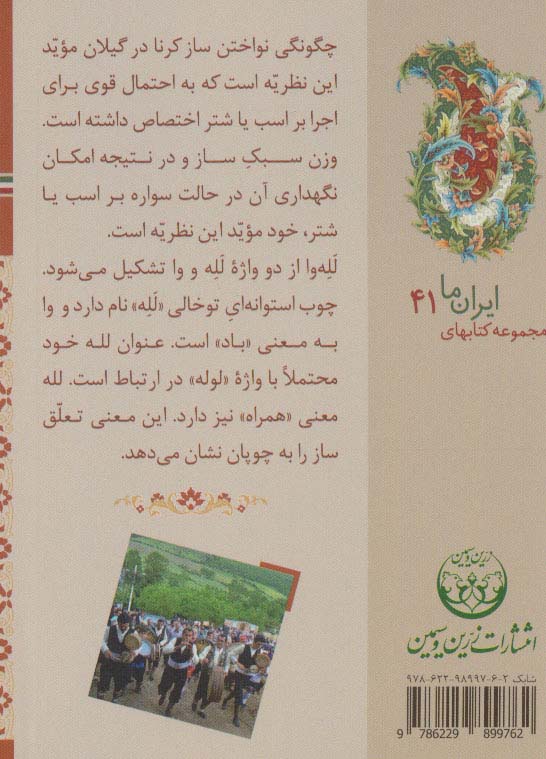 چگونگی نواختن ساز کرنا در گیلان مؤیّد
این نظریّه است که به احتمال قوی برای
اجرا بر اسب یا شتر اختصاص داشته است.
وزن سبکِ ساز و در نتیجه امکان
نگهداری آن در حالت سواره بر اسب یا
شتر، خود مؤیّد این نظریّه است.
لَلِه‌وا از دو واژهٔ لَلِه و وا تشکیل می‌شود.
چوب استوانه‌ایِ توخالی «لَلِه» نام دارد و وا
به معنی «باد» است. عنوان لله خود
محتملاً با واژهٔ «لوله» در ارتباط است. لله
معنی «همراه» نیز دارد. این معنی تعلّق
ساز را به چوپان نشان می‌دهد.
ایران ما ۴۱
مجموعه کتابهای
زرین و سیمین
انتشارات زرین و سیمین
شابک ۲-۶-۹۸۹۹۷-۶۲۲-۹۷۸
9 786229 899762